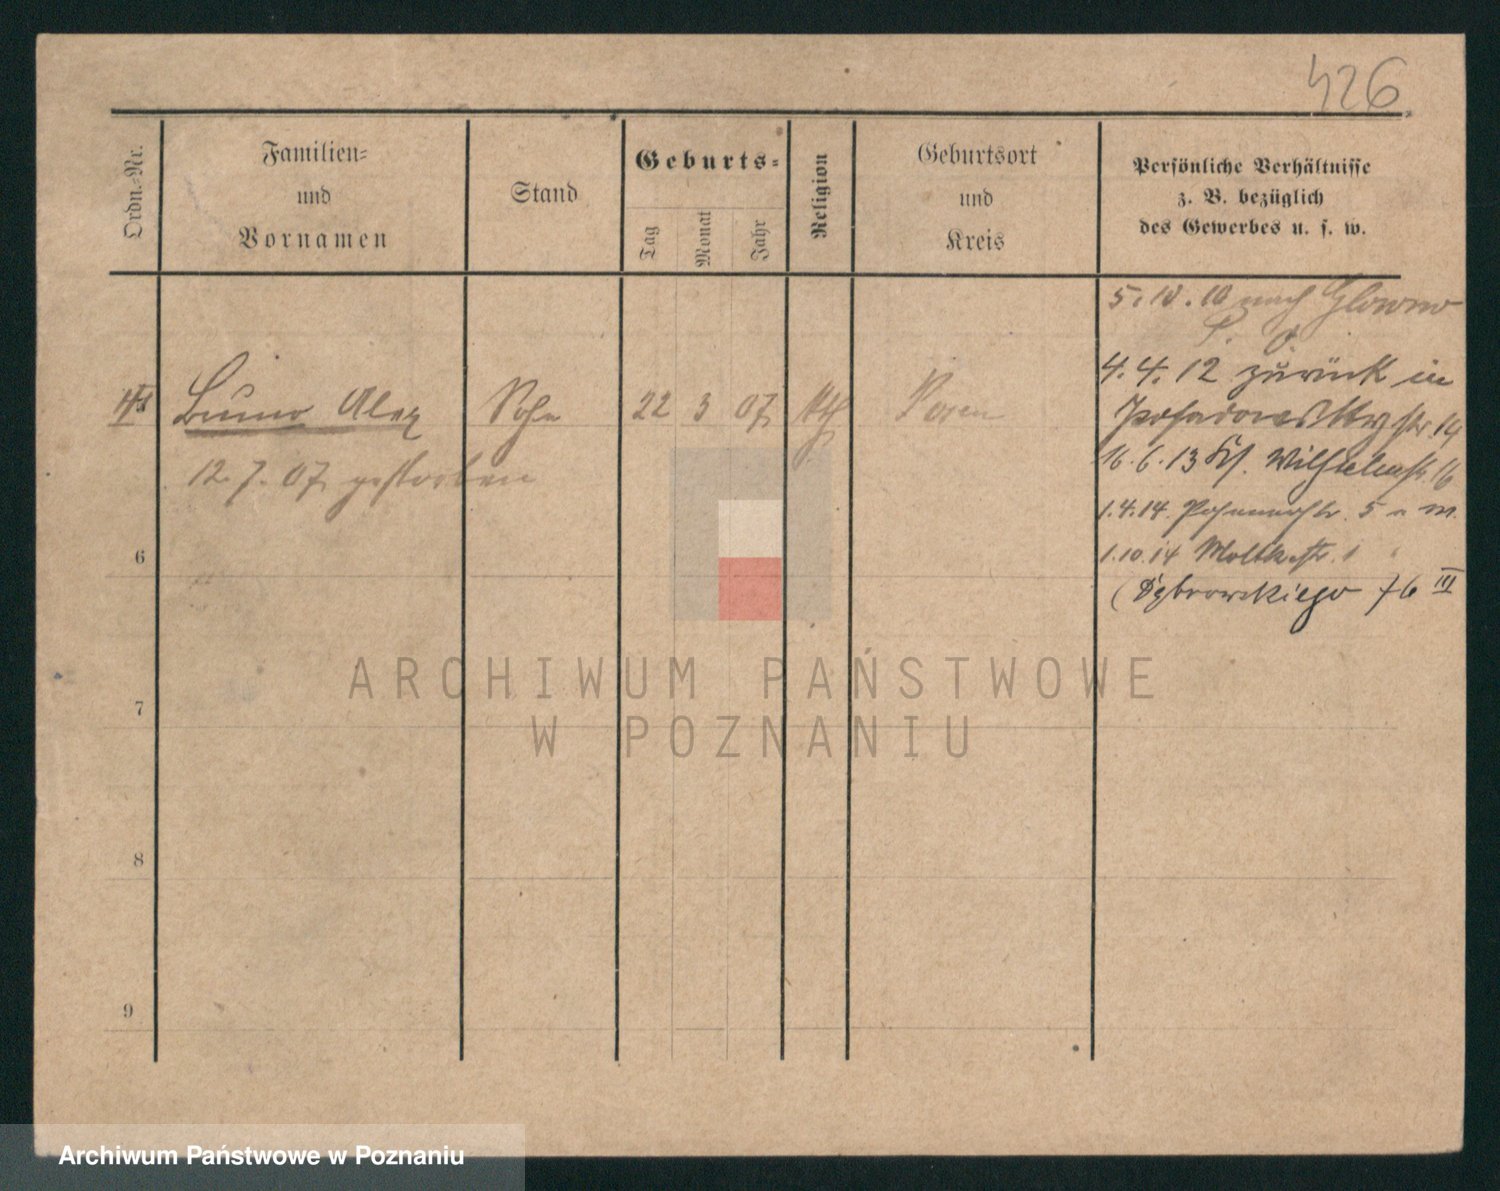 426
Ordn.-Nr.
Familien-
und
Vornamen
Stand
Geburts-
Tag
Monat
Jahr
Religion
Geburtsort
und
Kreis
Persönliche Verhältnisse
z. B. bezüglich
des Gewerbes u. s. w.
5. 10. 10 nach Glowno
4. 4. 12 zurück in
Bruno Alex
Sohn
22
3
07
kth
Posen
Posadowskystr. 14
12. 7. 07 gestorben
16. 6. 13 Wilhelmstr. 16
1. 4. 14. 5
6
1. 10. 14 Moltkestr. 1
(Dąbrowskiego 76 III
7
8
9
ARCHIWUM PAŃSTWOWE
W POZNANIU
Archiwum Państwowe w Poznaniu